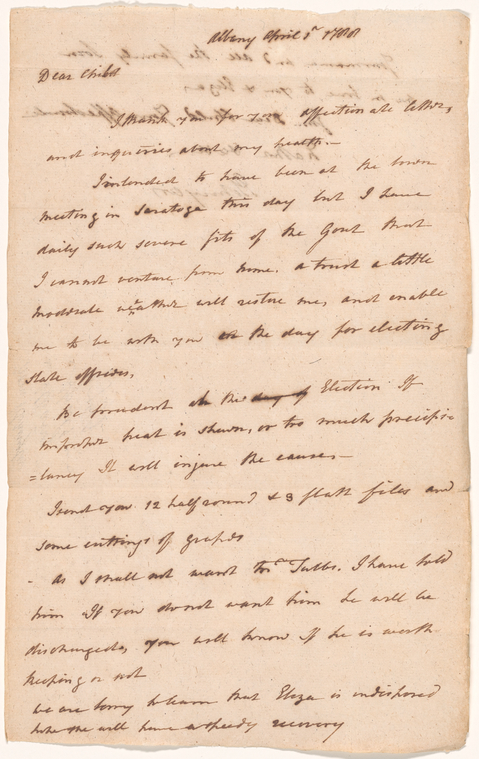 Albany April 1st 1788
Dear Child
I thank you for your affectionate letter,
and inquiries about my health.—
I intended to have been at the town
meeting in Saratoga this day but I have
daily such severe fits of the Gout that
I cannot venture from home. I trust a little
moderate weather will restore me, and enable
me to be with you on the day for electing
State officers.
Be prudent at the day of Election If
improper heat is shewn, or too much precipi-
=tancy It will injure the cause.—
I send you 12 half round & 3 flatt files and
some cuttings of grapes
- As I shall not want Tubbs. I have told
him if you do not want him he will be
discharged, you will know if he is worth
keeping or not
we are sorry to learn that Eliza is indisposed
hope she will have a speedy recovery